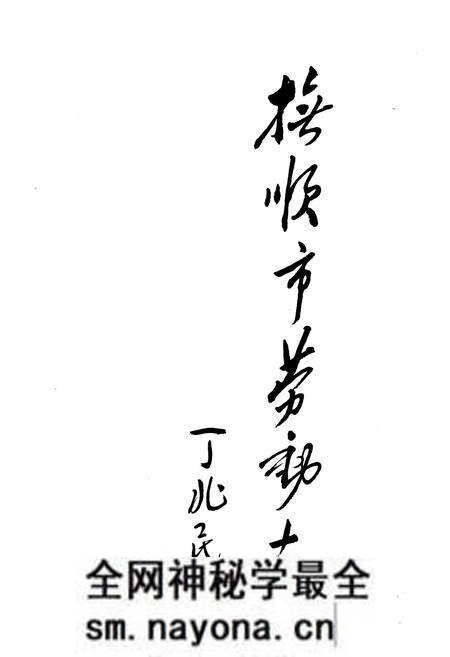 撫顺市劳動
丁兆民
全网神秘学最全
sm.nayona.cn